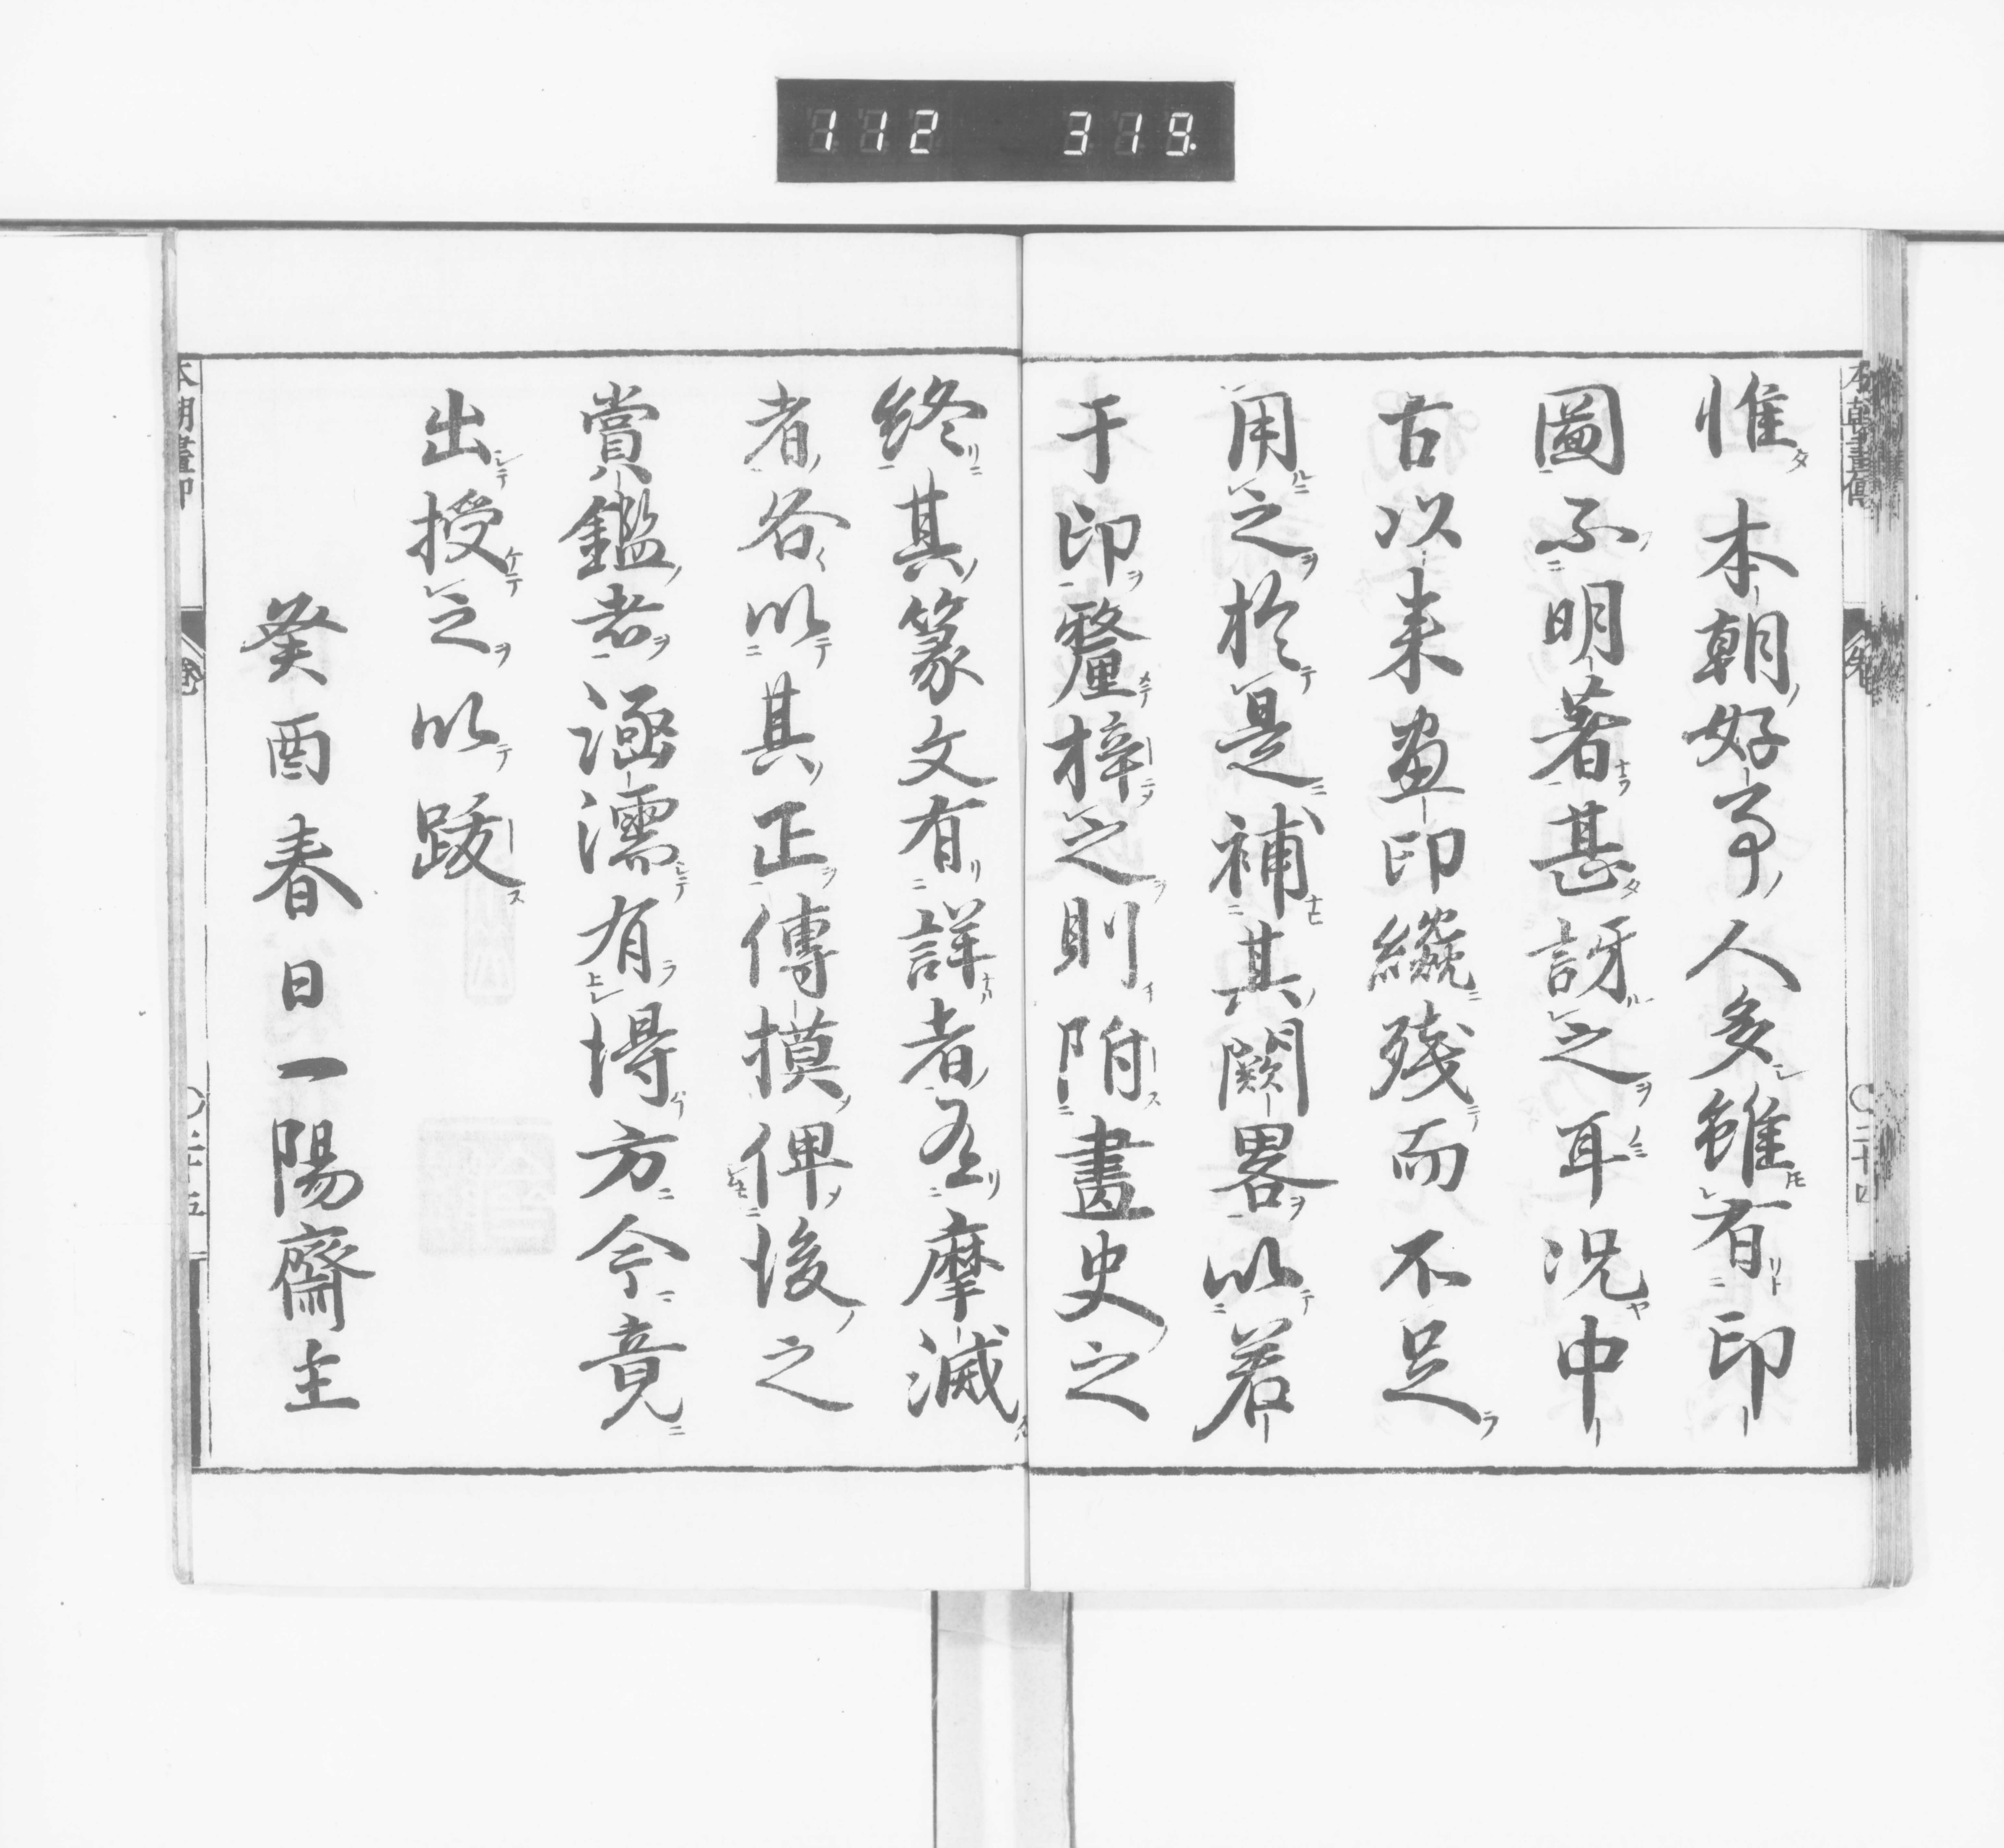 112 319
惟本朝好事人多雖有印
圖不明著甚訝之耳況中
古以来畫印纔残而不足
用之於是補其闕畧以若
干印釐梓之則附畫史之
終其篆文有詳者有摩滅
者各以其正傳摸俾後之
賞鑑者涵濡有得方今竟
出授之以跋
癸酉春日一陽齋主
本朝畫印